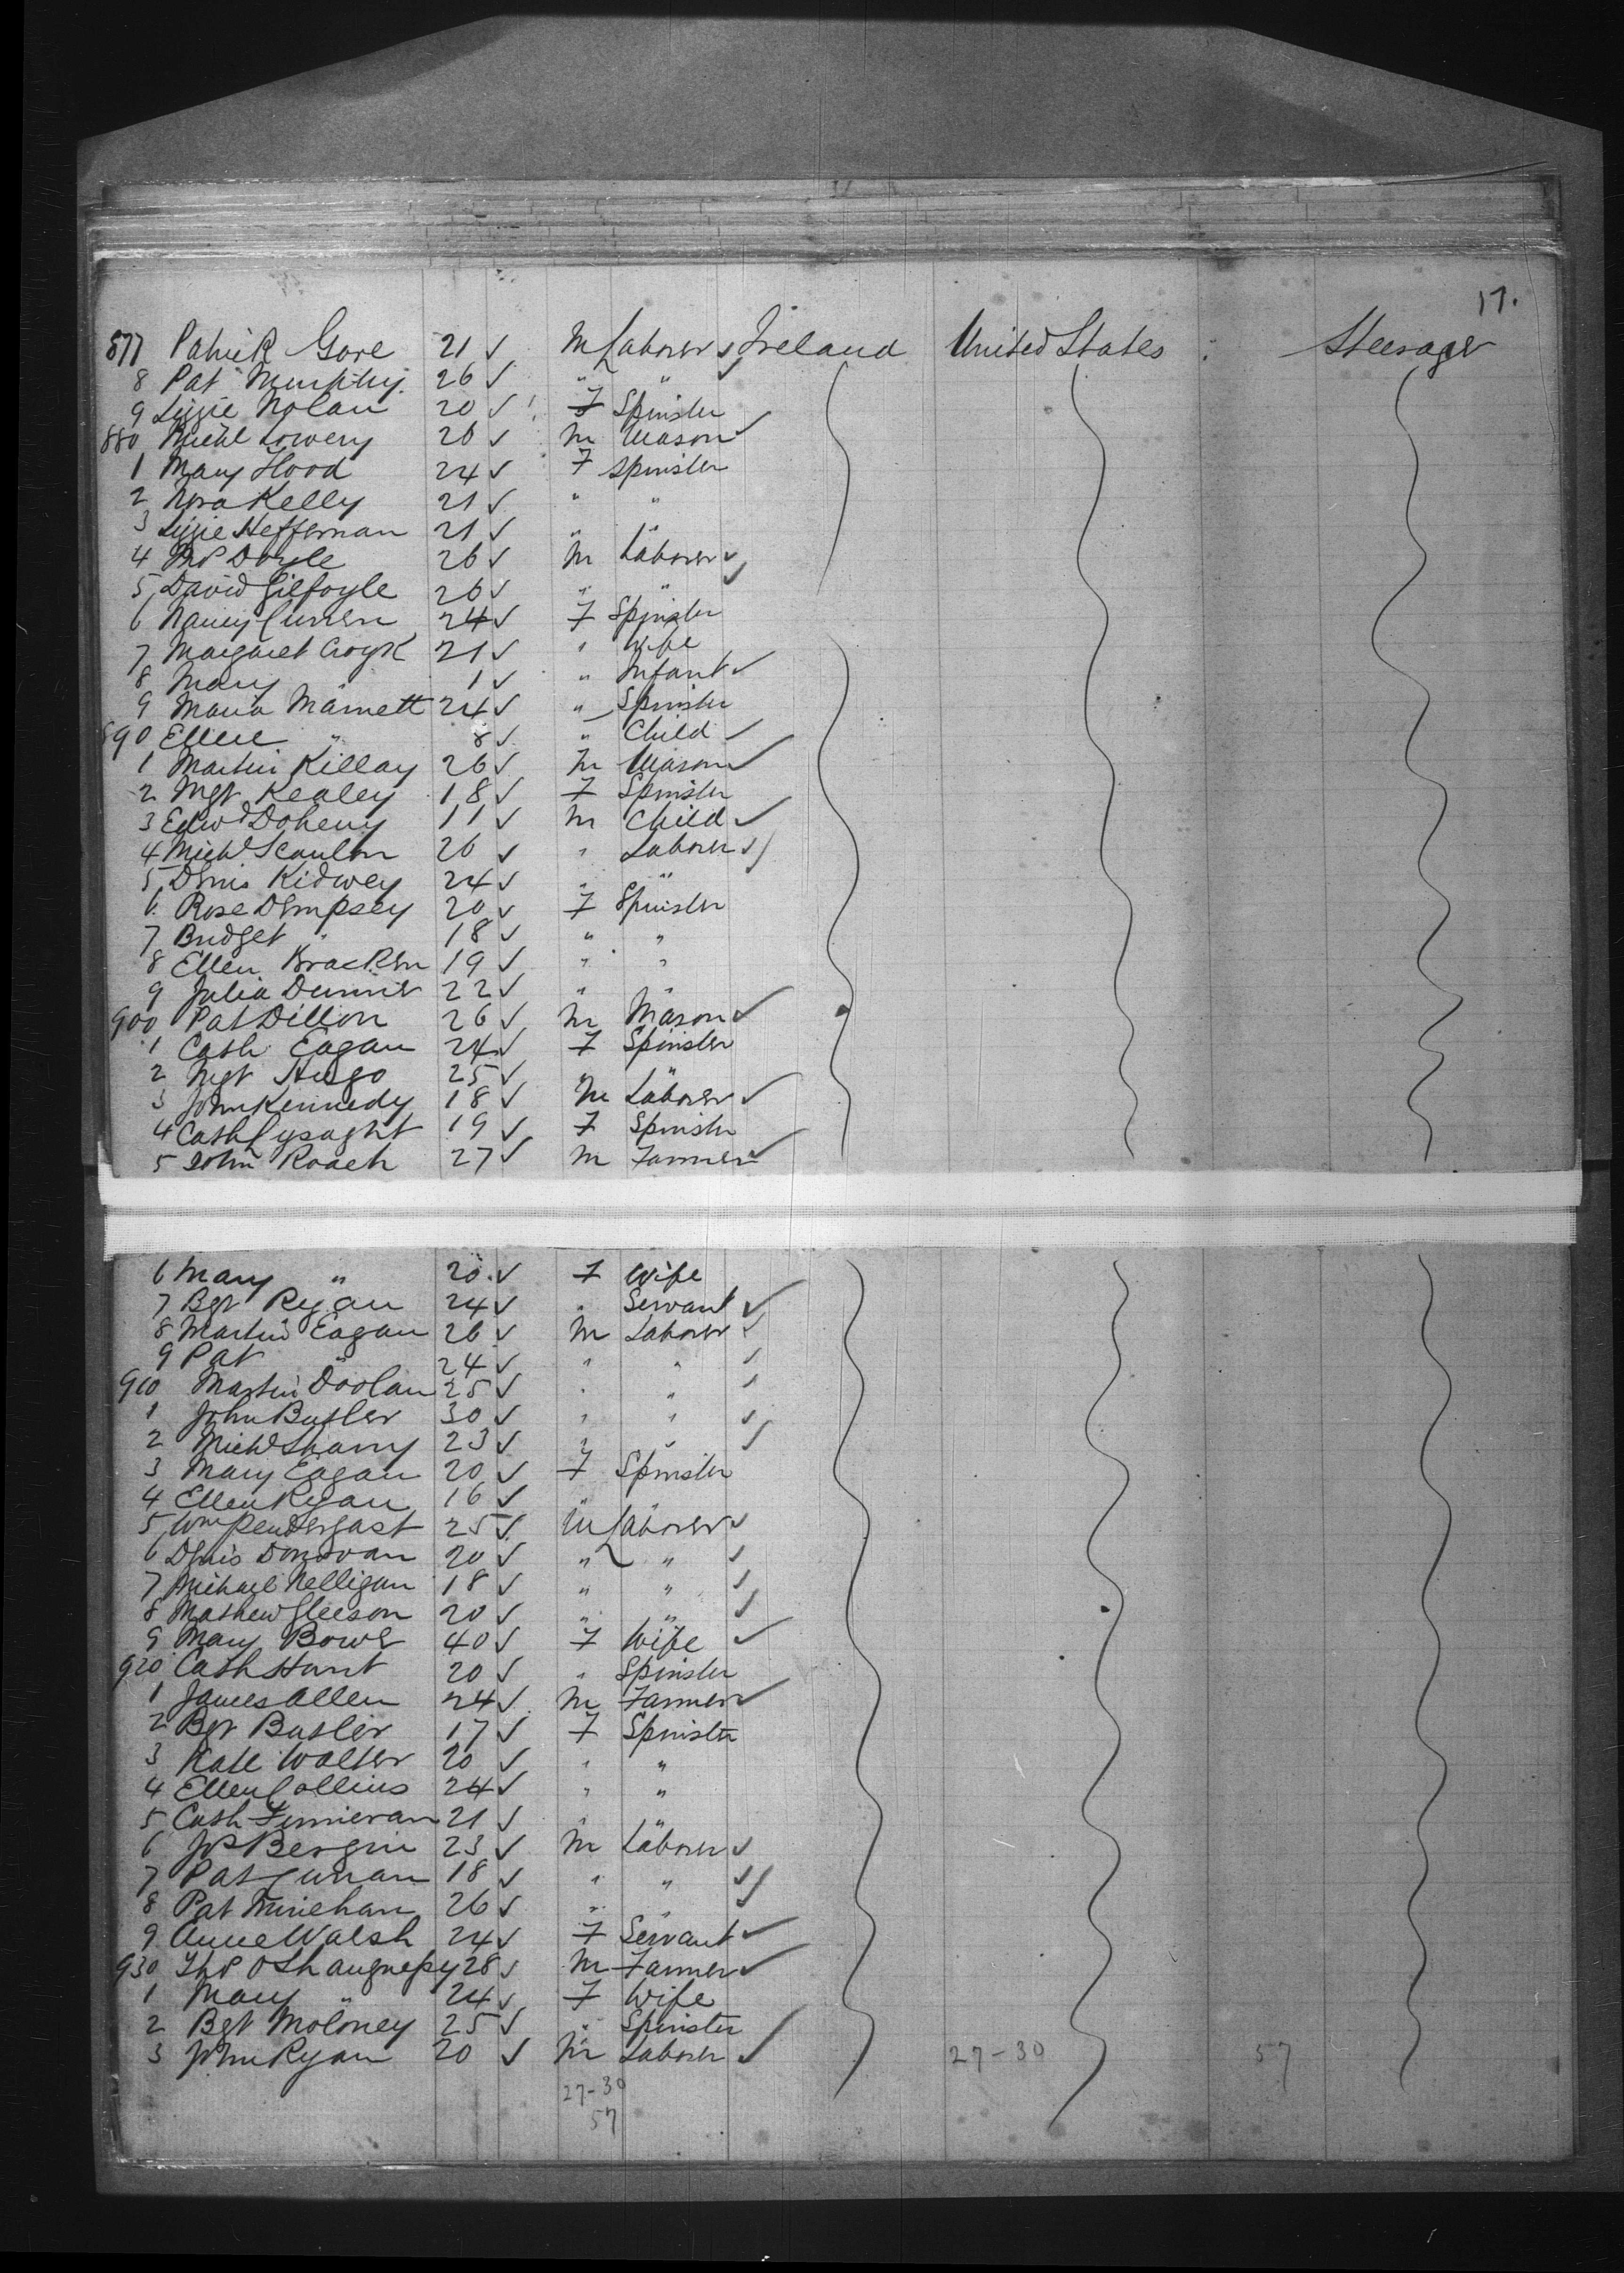 17.
877 Patrick Gore 21 ✓ M Laborer ✓ Ireland United States Steerage
8 Pat Murphy 26 ✓ " " ✓
9 Lizzie Nolan 20 ✓ F Spinster
880 Michl Lowery 26 ✓ M Mason ✓
1 Mary Hood 24 ✓ F Spinster
2 Nora Kelly 21 ✓ " "
3 Lizzie Heffernan 21 ✓ " "
4 Doyle 26 ✓ M Laborer ✓
5 David Gilfoyle 26 ✓ " " ✓
6 Nancy Curren 24 ✓ F Spinster
7 Margaret 21 ✓ " Wife
8 Mary " 1 ✓ " Infant ✓
9 Maria 24 ✓ " Spinster
890 Ellen " 8 ✓ " Child ✓
1 Martin Killay 26 ✓ M Mason ✓
2 Mgt Kealey 18 ✓ F Spinster
3 Edwd Doheny 11 ✓ M Child ✓
4 Michl Scanlon 20 ✓ " Laborer ✓
5 Denis Kidwey 24 ✓ " " ✓
6 Rose Dempsey 20 ✓ F Spinster
7 Bridget " 18 ✓ " "
8 Ellen Bracken 19 ✓ " "
9 Julia Dunne 22 ✓ " "
900 Pat Dillon 26 ✓ M Mason ✓
1 Cath Eagan 24 ✓ F Spinster
2 Mgt Hugo 25 ✓ " "
3 John Kennedy 18 ✓ M Laborer ✓
4 Cath Lysaght 19 ✓ F Spinster
5 John Roach 27 ✓ M Farmer ✓
6 Mary " 20 ✓ F Wife
7 Bgt Ryan 24 ✓ " Servant ✓
8 Martin Eagan 26 ✓ M Laborer ✓
9 Pat " 24 ✓ " " ✓
910 Martin Doolan 25 ✓ " " ✓
1 John Butler 30 ✓ " " ✓
2 Michl Sharry 23 ✓ " " ✓
3 Mary Eagan 20 ✓ F Spinster
4 Ellen Ryan 16 ✓ " "
5 Wm Pendergast 25 ✓ M Laborer ✓
6 Denis Donovan 20 ✓ " " ✓
7 Michael Nelligan 18 ✓ " " ✓
8 Mathew Gleeson 20 ✓ " " ✓
9 Mary Bowe 40 ✓ F Wife ✓
920 Cath Hunt 20 ✓ " Spinster
1 James Allen 24 ✓ M Farmer ✓
2 Bgt Butler 17 ✓ F Spinster
3 Kate Walter 20 ✓ " "
4 Ellen Collins 24 ✓ " "
5 Cath Finneran 21 ✓ " "
6 Bergin 23 ✓ M Laborer ✓
7 Pat Curran 18 ✓ " " ✓
8 Pat Minehan 26 ✓ " " ✓
9 Anne Walsh 24 ✓ F Servant ✓
930 Ths O Shaugnessy 28 ✓ M Farmer ✓
1 Mary " 24 ✓ F Wife
2 Bgt Moloney 25 ✓ " Spinster
3 John Ryan 20 ✓ M Laborer ✓ 27-30 57
27-30
57